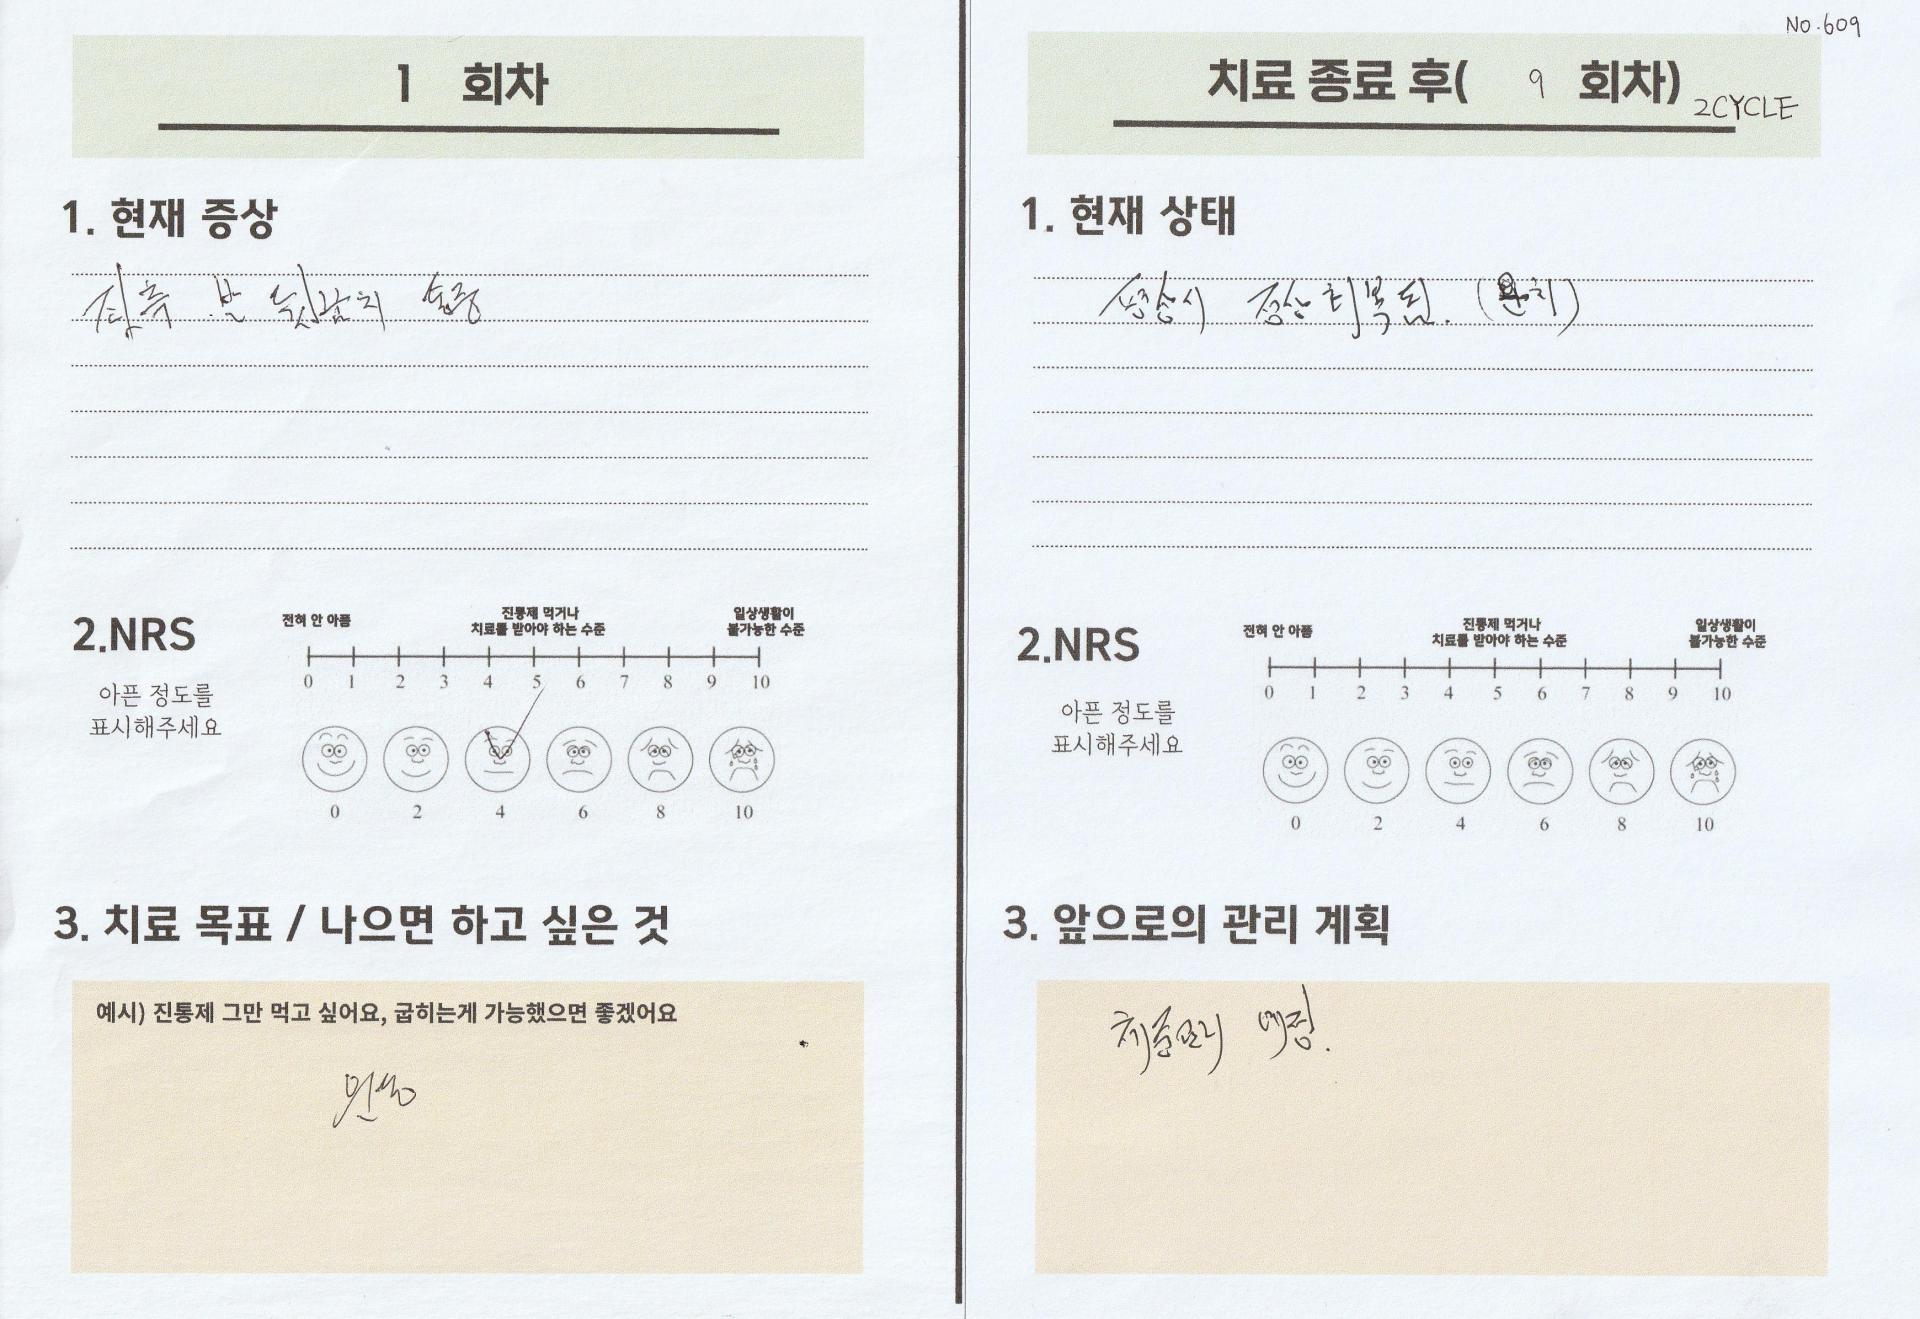 1 회차
1. 현재 증상
발 뒷꿈치 통증
2.NRS
아픈 정도를
표시해주세요
전혀 안 아픔
진통제 먹거나
치료를 받아야 하는 수준
일상생활이
불가능한 수준
0 1 2 3 4 5 6 7 8 9 10
0 2 4 6 8 10
3. 치료 목표 / 나으면 하고 싶은 것
예시) 진통제 그만 먹고 싶어요, 굽히는게 가능했으면 좋겠어요
No.609
치료 종료 후( 9 회차)
2CYCLE
1. 현재 상태
정상 회복됨.
2.NRS
아픈 정도를
표시해주세요
전혀 안 아픔
진통제 먹거나
치료를 받아야 하는 수준
일상생활이
불가능한 수준
0 1 2 3 4 5 6 7 8 9 10
0 2 4 6 8 10
3. 앞으로의 관리 계획
예정.